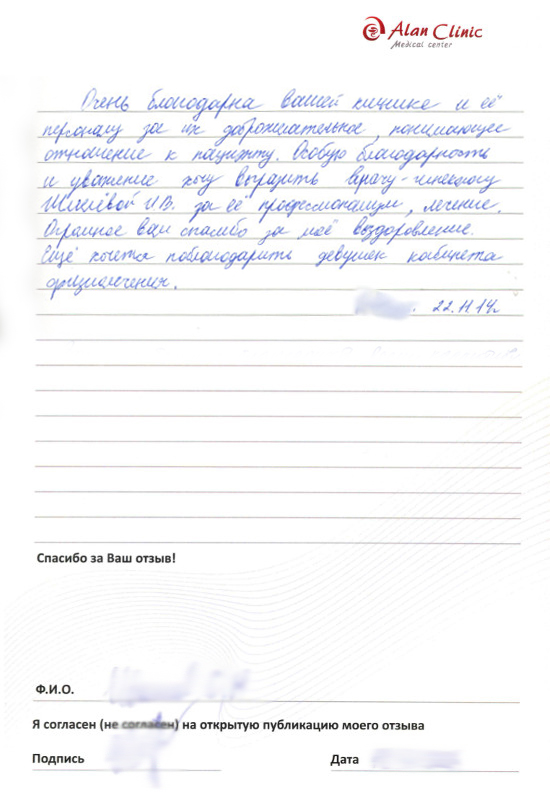 Alan Clinic
Medical center
Очень благодарна вашей клинике и её
персоналу за их доброжелательное, понимающее
отношение к пациенту. Особую благодарность
и уважение хочу выразить врачу-гинекологу
И.В. за её профессионализм, лечение.
Огромное вам спасибо за моё выздоровление.
Ещё хочется поблагодарить девушек кабинета
физиолечения.
22.11.14г.
Спасибо за Ваш отзыв!
Ф.И.О.
Я согласен (не согласен) на открытую публикацию моего отзыва
Подпись
Дата